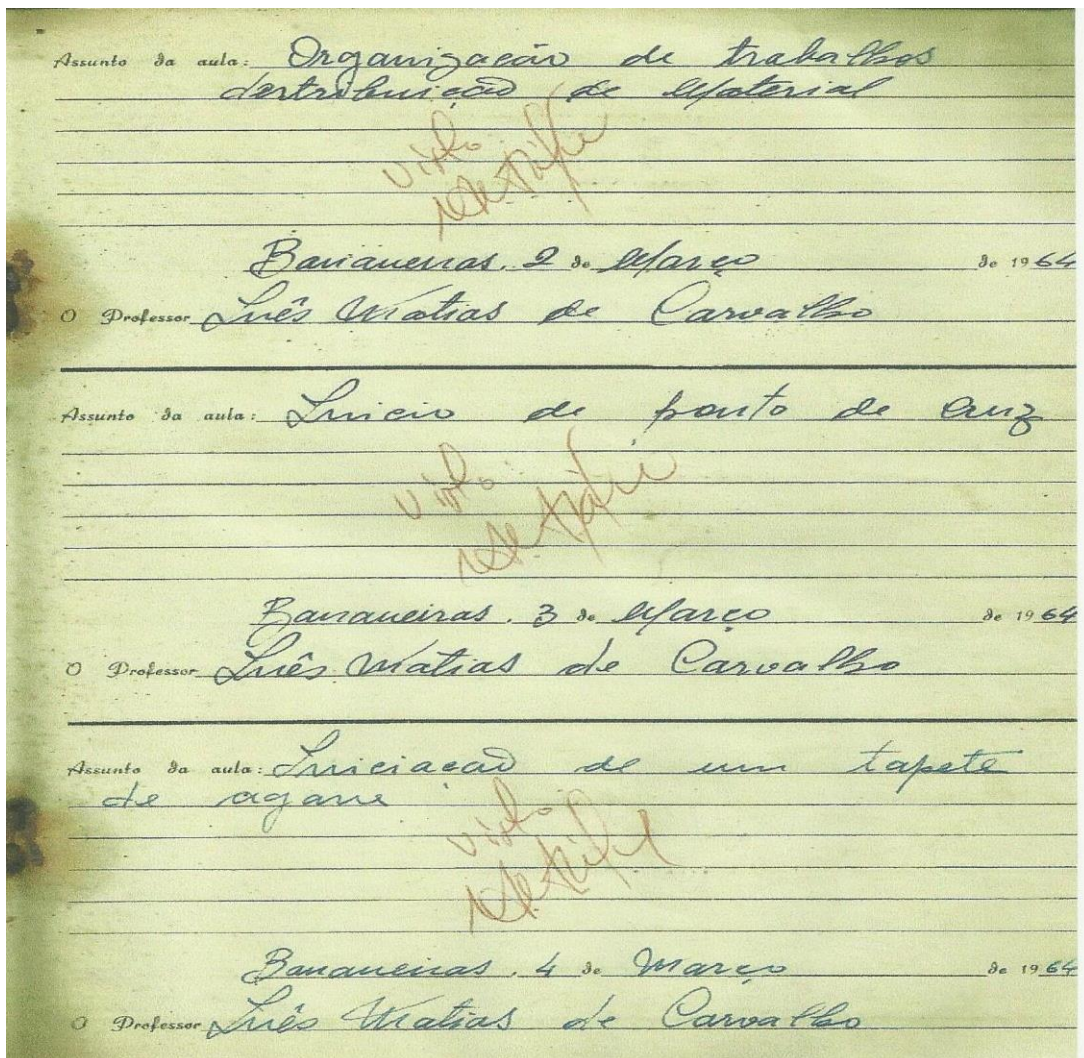 Assunto da aula: Organização de trabalhos
destribuicão de Material
visto
Bananeiras. 2 de Março de 1964
O Professor Inês Matias de Carvalho
Assunto da aula: Inicio de ponto de cruz
visto
Bananeiras. 3 de Março de 1964
O Professor Inês Matias de Carvalho
Assunto da aula: Iniciacão de um tapete
de agave
visto
Bananeiras. 4 de Março de 1964
O Professor Inês Matias de Carvalho